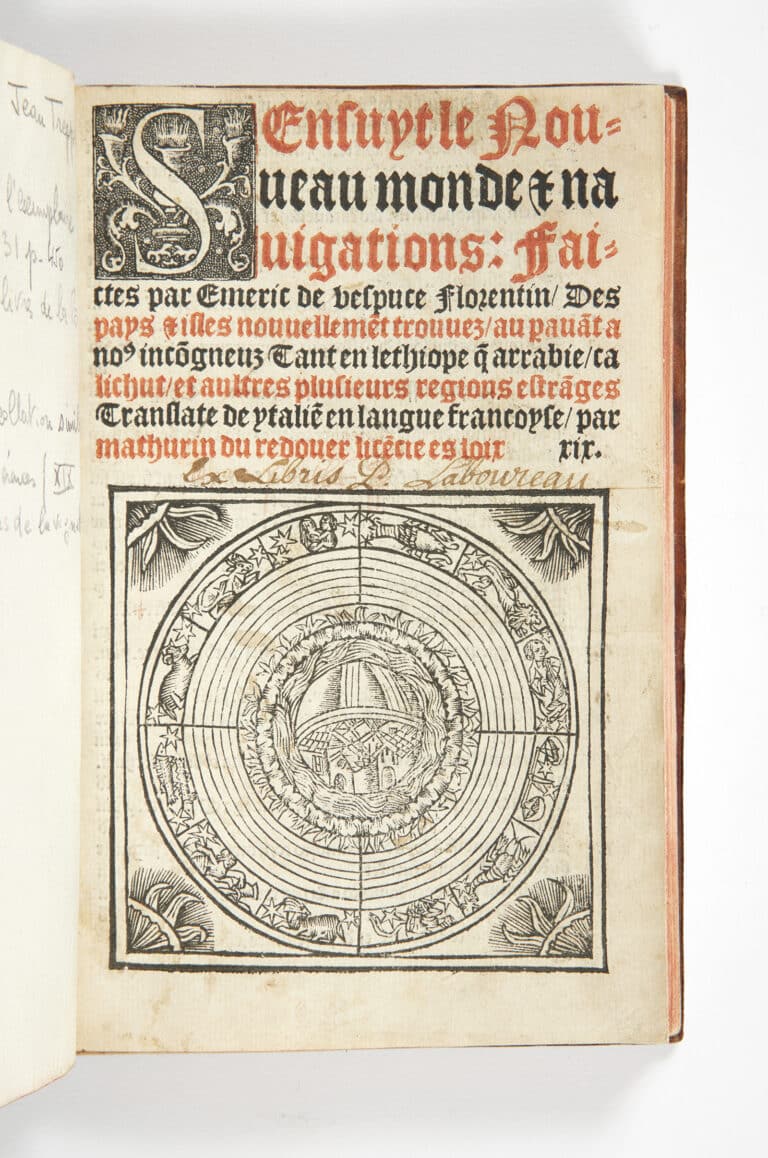 Jean
l'exemplaire
31 p. 450
livres de la
collation
XIX
de la
SEnsuytle Nou=
ueau monde & na
uigations: Fai=
ctes par Emeric de vespuce Florentin/ Des
pays & isles nouuellemēt trouuez/au pauāt a
noꝰ incōgneuz Tant en lethiope q̄ arrabie/ca
lichut/et aultres plusieurs regions estrāges
Translate de ytaliē en langue francoyse/ par
mathurin du redouer licēcie es loix xix.
Ex Libris P. Laboureau